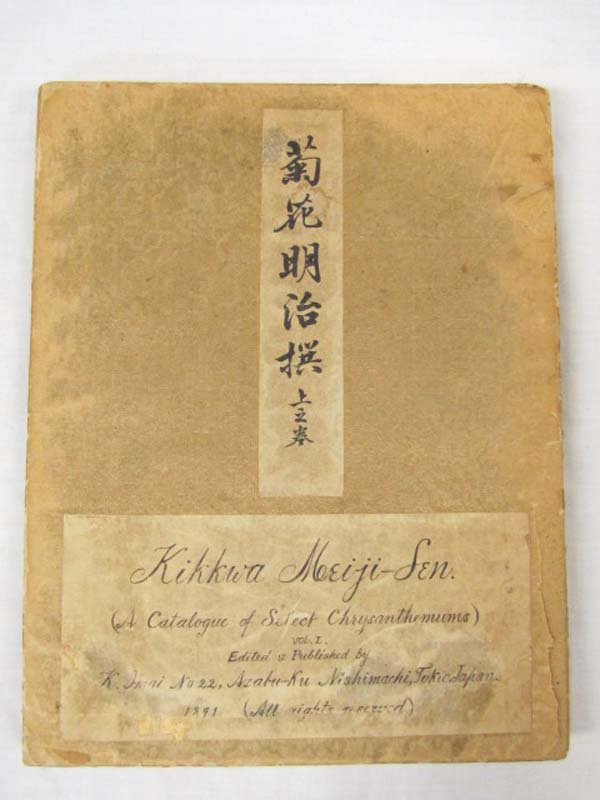 菊花明治撰 上之巻
Kikkwa Meiji-Sen.
(A Catalogue of Select Chrysanthemums)
Vol. I.
Edited & Published by
K. Imai No 22, Azabu-Ku Nishimachi, Tokio Japan.
1891 (All rights reserved)